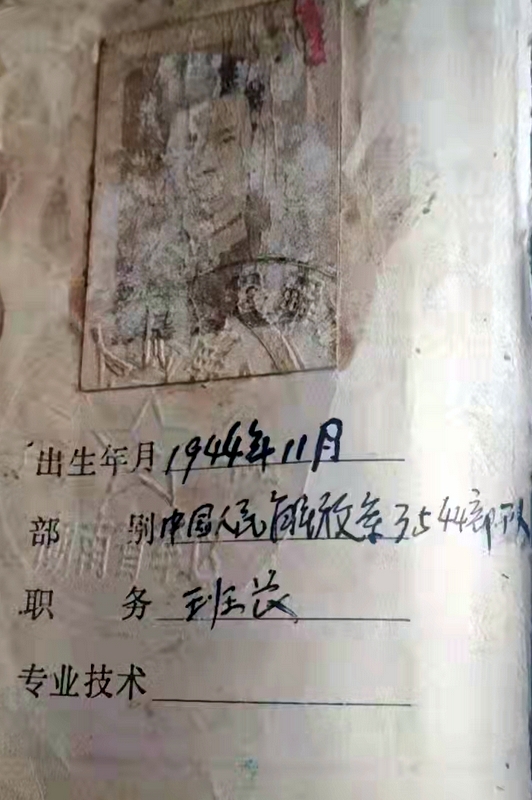 出生年月 1944年11月
部 别 中国人民解放军3544部队
职 务 班长
专业技术